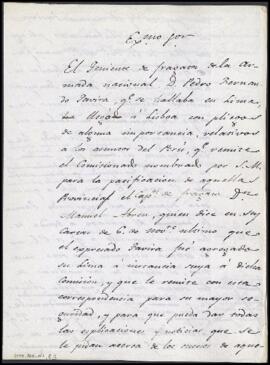 Exmo Sor
El Teniente de fragata de la Ar-
mada nacional D. Pedro Fernando
Pavira, qe. se hallaba en Lima,
ha llegado á Lisboa con pliegos
de alguna importancia, relativos
a los asuntos del Perú, qe. remite
el Comisionado nombrado por S. M.
para la pacificacion de aquella
Provincia, el capn. de fragata Dn.
Manuel Abreu, quien dice en su
carta de 6. de novre. ultimo que
el expresado Pavira fué
Lima á instancia suya á dicha
Comision, y que le remite con esta
correspondencia para su mayor se-
guridad, y para que pueda dar todas
las esplicaciones y noticias que se
le pidan acerca de los sucesos de aque-